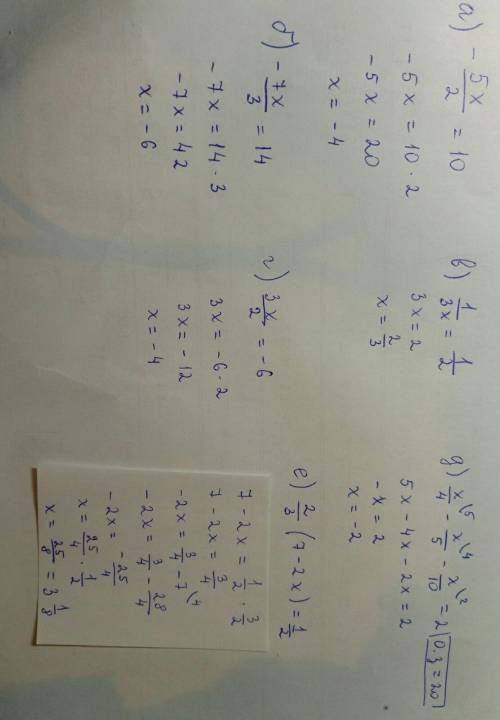 а) - 5x/2 = 10
-5x = 10 · 2
-5x = 20
x = -4
б) - 7x/3 = 14
-7x = 14 · 3
-7x = 42
x = -6
в) 1/3x = 1/2
3x = 2
x = 2/3
г) 3x/2 = -6
3x = -6 · 2
3x = -12
x = -4
д) x/4 \5 - x/5 \4 - x/10 \2 = 2 | О.З = 20
5x - 4x - 2x = 2
-x = 2
x = -2
е) 2/3 (7 - 2x) = 1/2
7 - 2x = 1/2 · 3/2
7 - 2x = 3/4
-2x = 3/4 - 7 \4
-2x = 3/4 - 28/4
-2x = -25/4
x = 25/4 · 1/2
x = 25/8 = 3 1/8